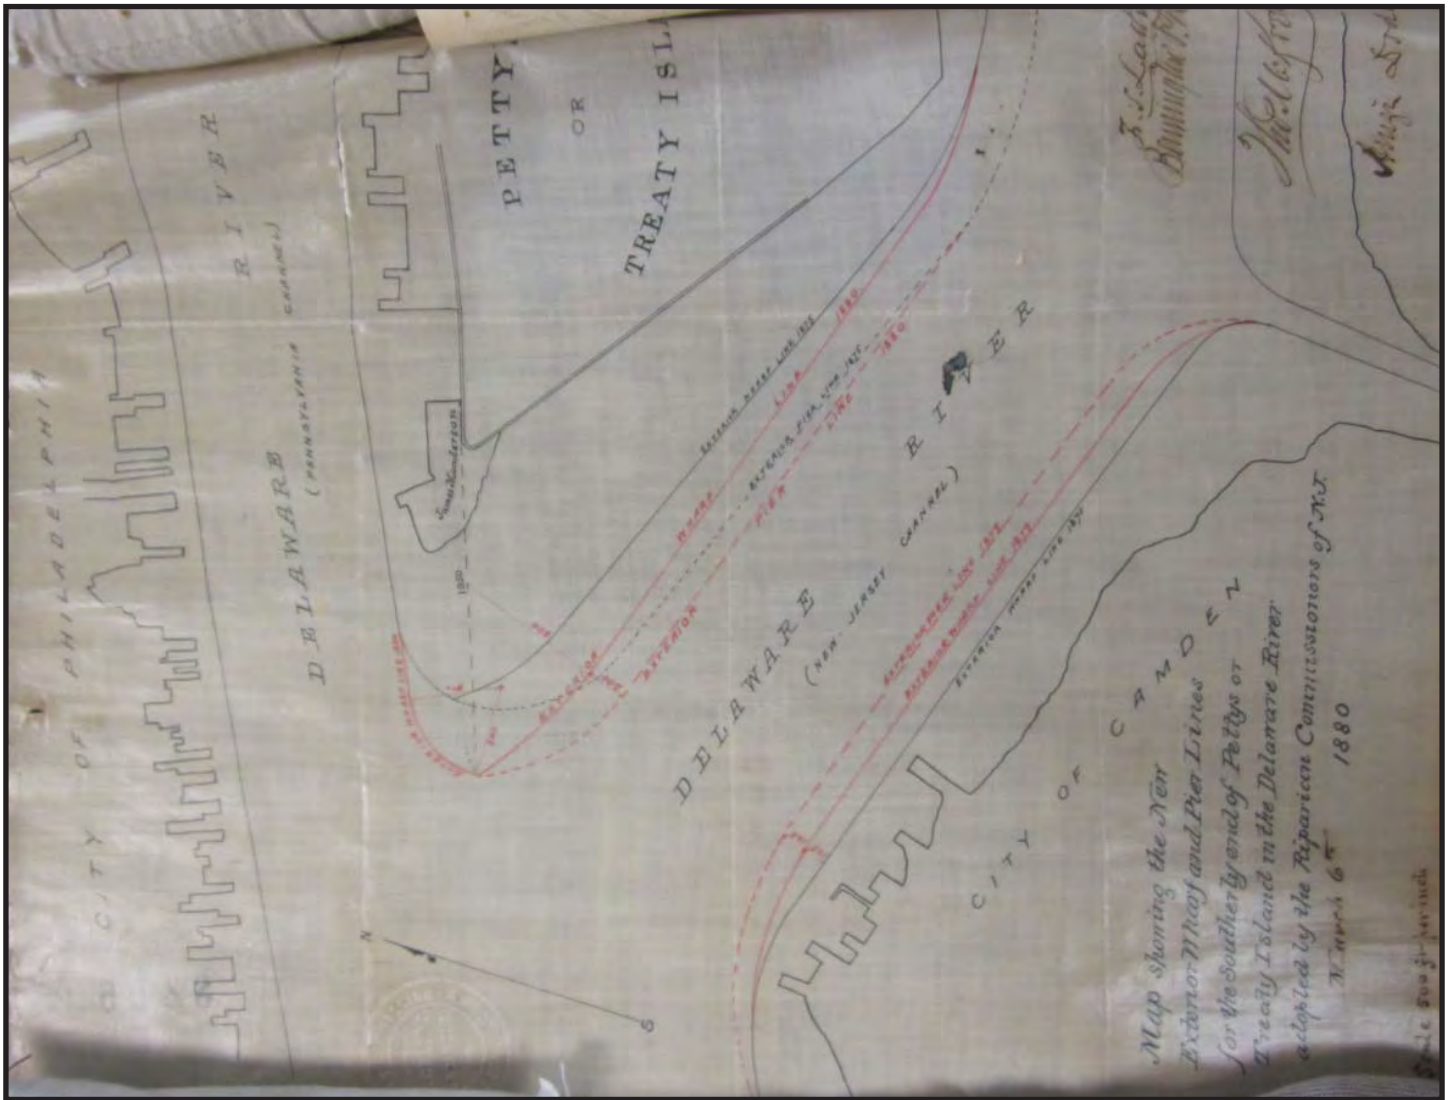 CITY OF PHILADELPHIA
DELAWARE RIVER
(PENNSYLVANIA CHANNEL)
PETTY
OR
TREATY ISL
James Henderson
1200
EXTERIOR WHARF LINE 1875
EXTERIOR WHARF LINE 1880
EXTERIOR PIER LINE 1875
EXTERIOR PIER LINE 1880
DELAWARE RIVER
(NEW JERSEY CHANNEL)
EXTERIOR PIER LINE 1872
EXTERIOR WHARF LINE 1872
EXTERIOR WHARF LINE
CITY OF CAMDEN
N
S
Map showing the New
Exterior Wharf and Pier Lines
for the Southerly end of Pettys or
Treaty Island in the Delaware River
adopted by the Riparian Commissioners of N.J.
March 6
1880
Scale 500 ft per inch